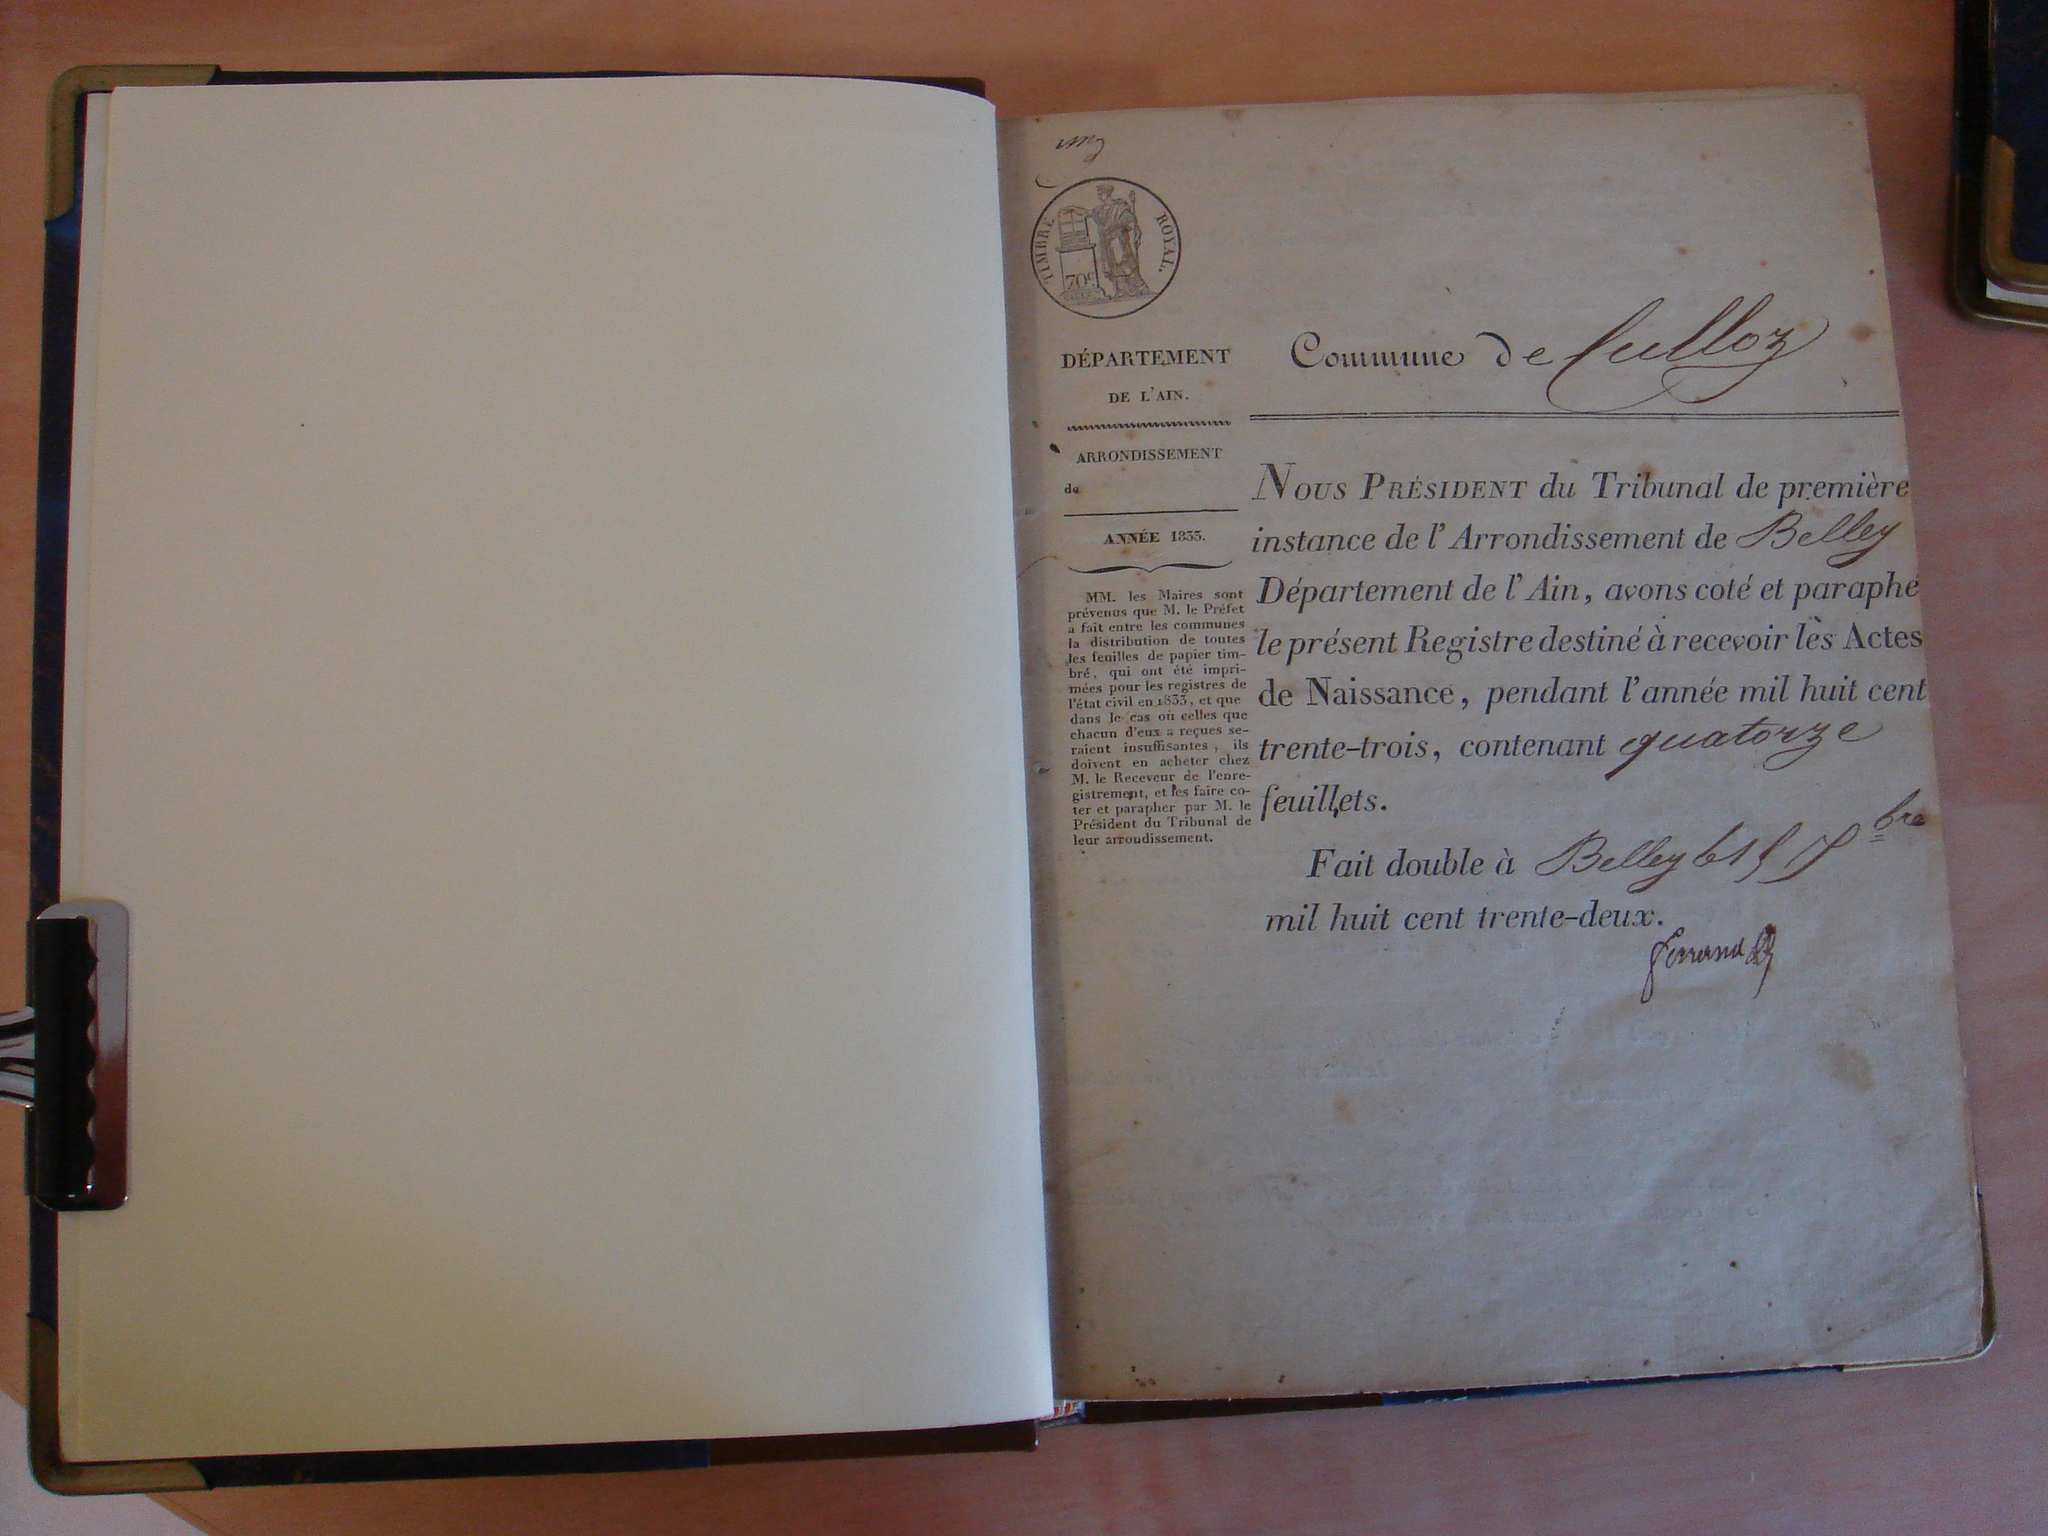 TIMBRE ROYAL.
70 c
DÉPARTEMENT
DE L'AIN.
ARRONDISSEMENT
de
ANNÉE 1833.
MM. les Maires sont
prévenus que M. le Préfet
a fait entre les communes
la distribution de toutes
les feuilles de papier tim-
bré, qui ont été impri-
mées pour les registres de
l'état civil en 1833, et que
dans le cas où celles que
chacun d'eux a reçues se-
raient insuffisantes, ils
doivent en acheter chez
M. le Receveur de l'enre-
gistrement, et les faire co-
ter et parapher par M. le
Président du Tribunal de
leur arrondissement.
Commune de Culloz
NOUS PRÉSIDENT du Tribunal de première
instance de l'Arrondissement de Belley
Département de l'Ain, avons coté et paraphé
le présent Registre destiné à recevoir les Actes
de Naissance, pendant l'année mil huit cent
trente-trois, contenant quatorze
feuillets.
Fait double à Belley le 15 bre
mil huit cent trente-deux.